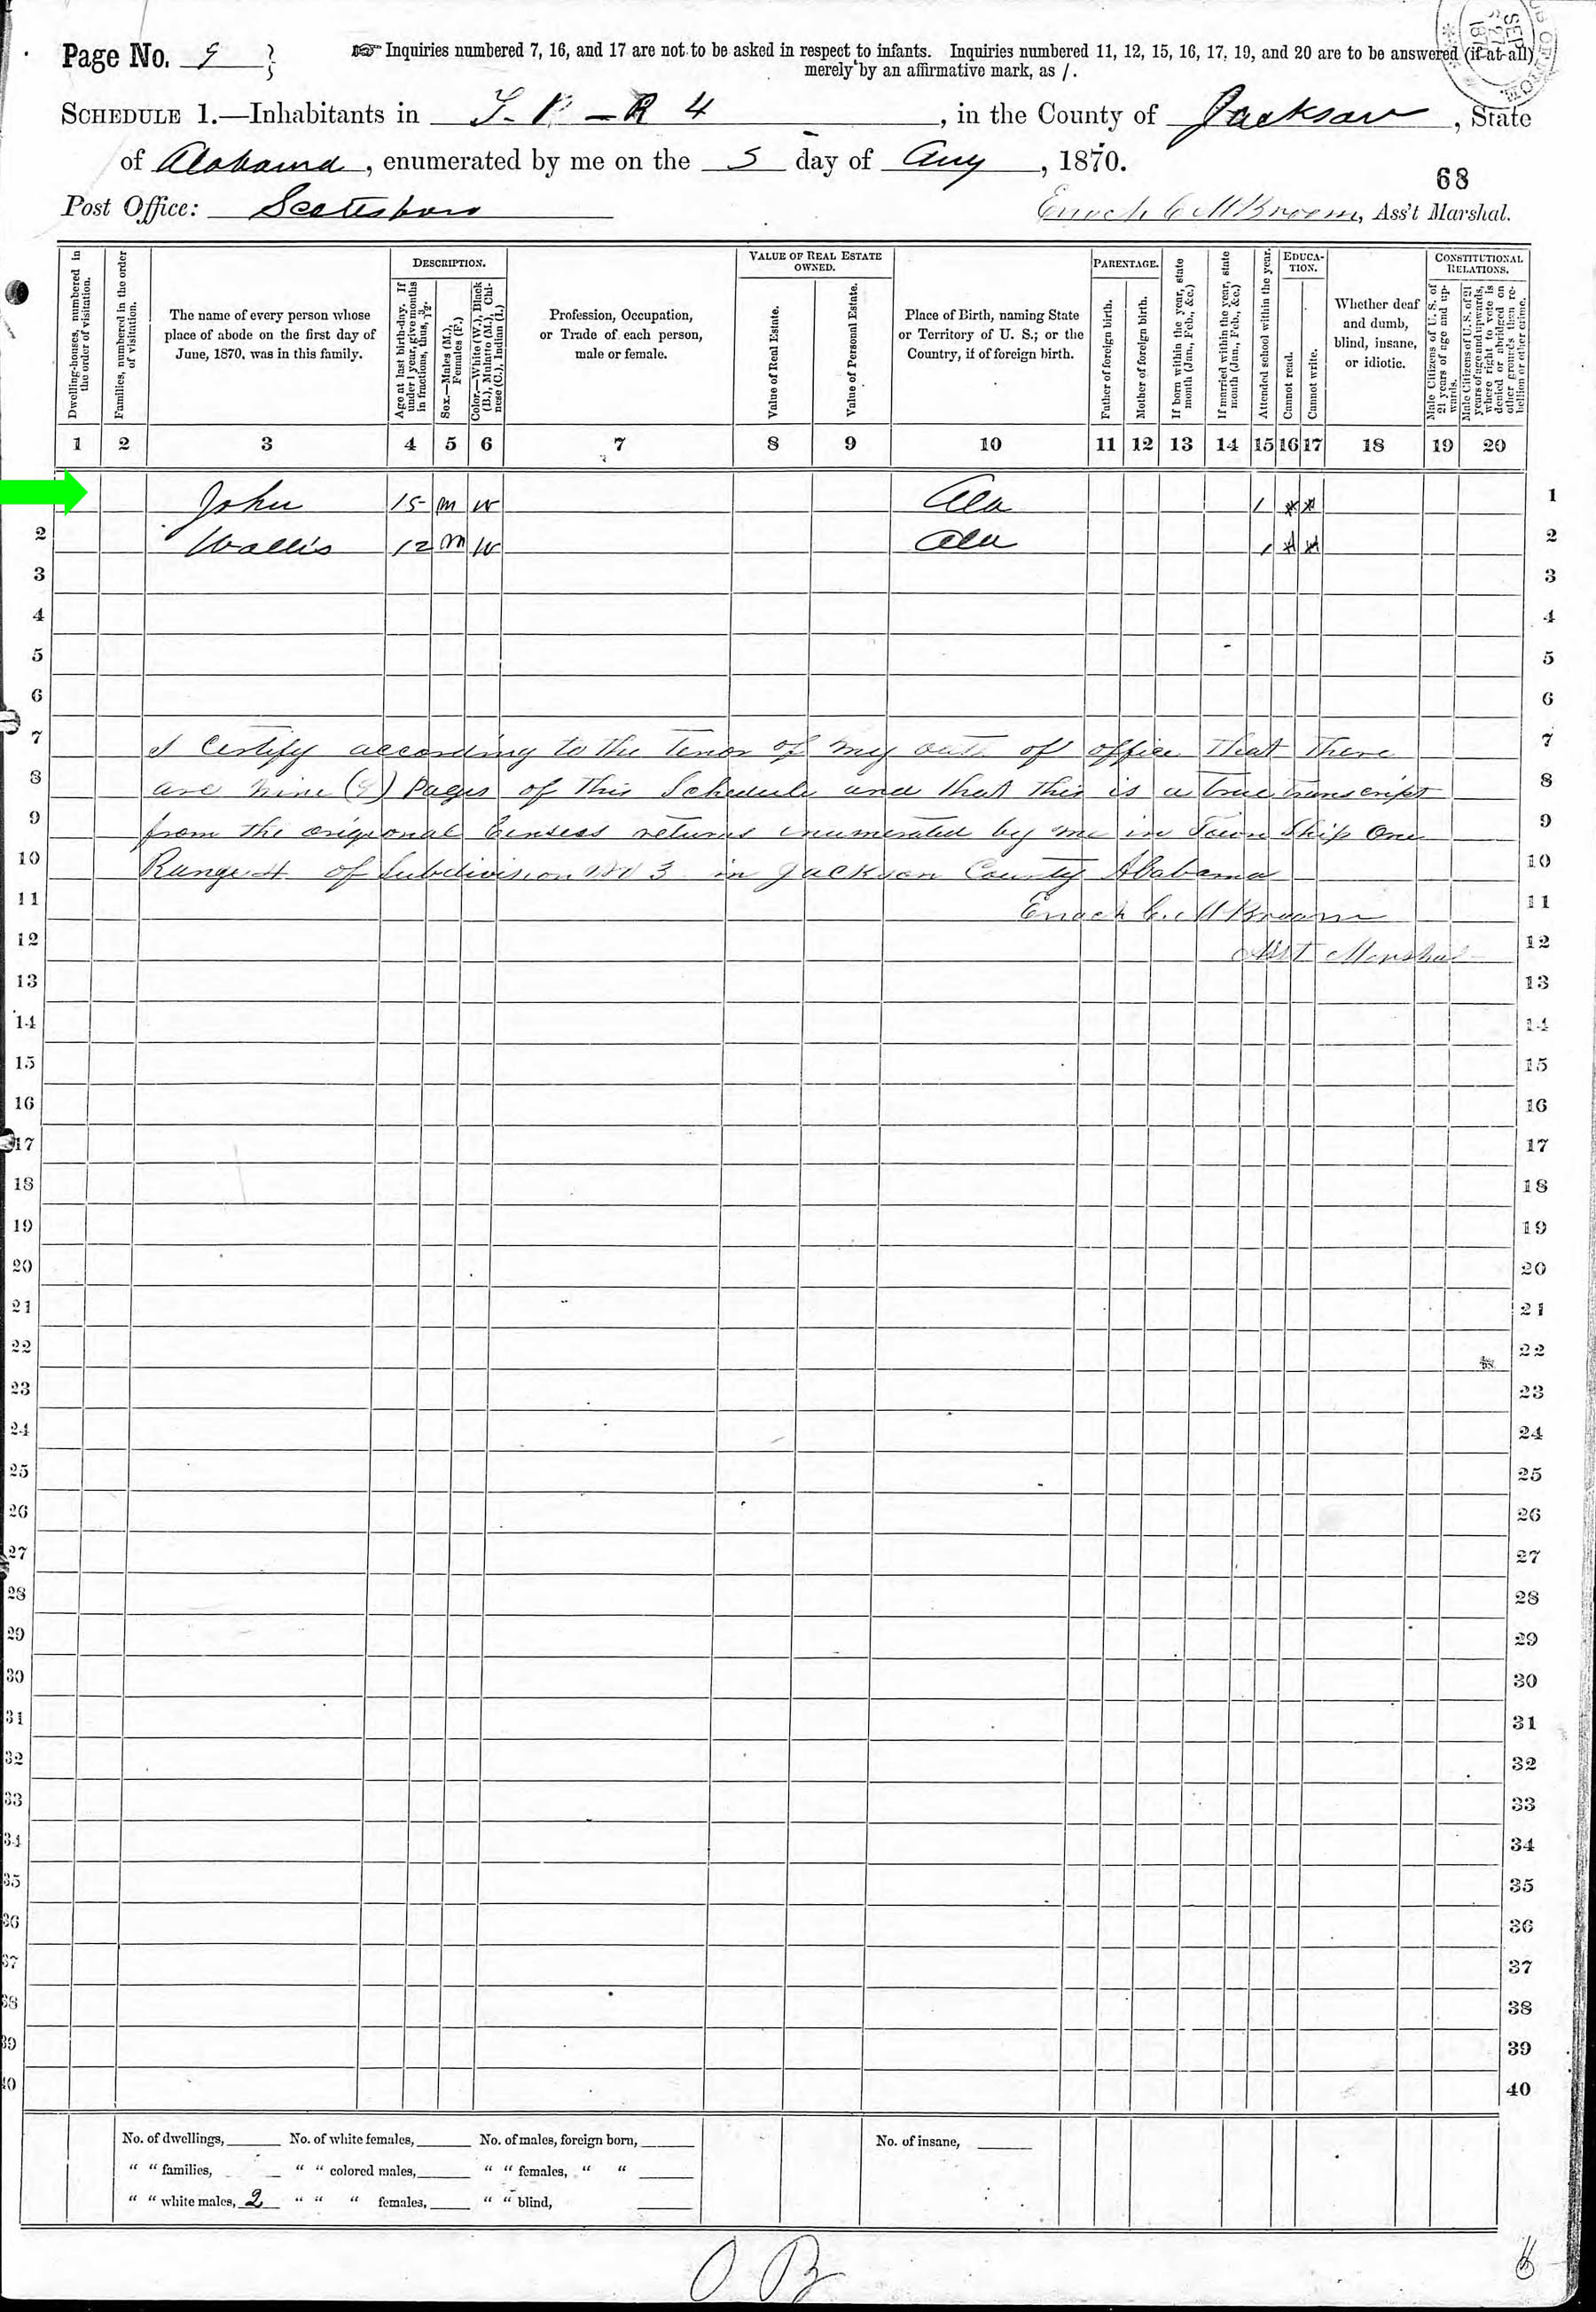 Page No. 9
☞ Inquiries numbered 7, 16, and 17 are not to be asked in respect to infants. Inquiries numbered 11, 12, 15, 16, 17, 19, and 20 are to be answered (if at all)
merely by an affirmative mark, as /.
SCHEDULE 1.—Inhabitants in T. 1 – R 4, in the County of Jackson, State
of Alabama, enumerated by me on the 5 day of Aug, 1870.
68
Post Office: Scottsboro
Enoch C. McBroom, Ass't Marshal.
Dwelling-houses, numbered in the order of visitation.
Families, numbered in the order of visitation.
The name of every person whose place of abode on the first day of June, 1870, was in this family.
DESCRIPTION.
Age at last birth-day. If under 1 year, give months in fractions, thus, 3/12.
Sex.—Males (M.), Females (F.)
Color.—White (W.), Black (B.), Mulatto (M.), Chinese (C.), Indian (I.)
Profession, Occupation, or Trade of each person, male or female.
VALUE OF REAL ESTATE OWNED.
Value of Real Estate.
Value of Personal Estate.
Place of Birth, naming State or Territory of U. S.; or the Country, if of foreign birth.
PARENTAGE.
Father of foreign birth.
Mother of foreign birth.
If born within the year, state month (Jan., Feb., &c.)
If married within the year, state month (Jan., Feb., &c.)
Attended school within the year.
EDUCATION.
Cannot read.
Cannot write.
Whether deaf and dumb, blind, insane, or idiotic.
CONSTITUTIONAL RELATIONS.
Male Citizens of U. S. of 21 years of age and upwards.
Male Citizens of U. S. of 21 years of age and upwards, where right to vote is denied or abridged on other grounds than rebellion or other crime.
1 2 3 4 5 6 7 8 9 10 11 12 13 14 15 16 17 18 19 20
John 15 m w Ala / * * 1
2 Wallis 12 m w Ala / * * 2
3 3
4 4
5 5
6 6
7 I Certify according to the Tenor of my oath of office that there 7
8 are nine (9) Pages of this Schedule and that this is a true transcript 8
9 from the origional Census returns enumerated by me in Town Ship One 9
10 Range 4 of Subdivision No 3 in Jackson County Alabama 10
11 Enoch C. McBroom 11
12 Asst Marshal 12
13 13
14 14
15 15
16 16
17 17
18 18
19 19
20 20
21 21
22 22
23 23
24 24
25 25
26 26
27 27
28 28
29 29
30 30
31 31
32 32
33 33
34 34
35 35
36 36
37 37
38 38
39 39
40 40
No. of dwellings, No. of white females, No. of males, foreign born, No. of insane,
" " families, " " colored males, " " females, " "
" " white males, 2 " " " females, " " blind,
O B